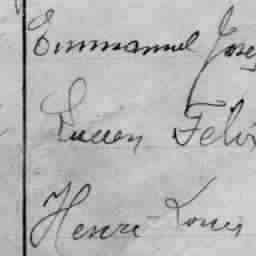 Emmanuel Jose
Lucien Félix
Henri Louis